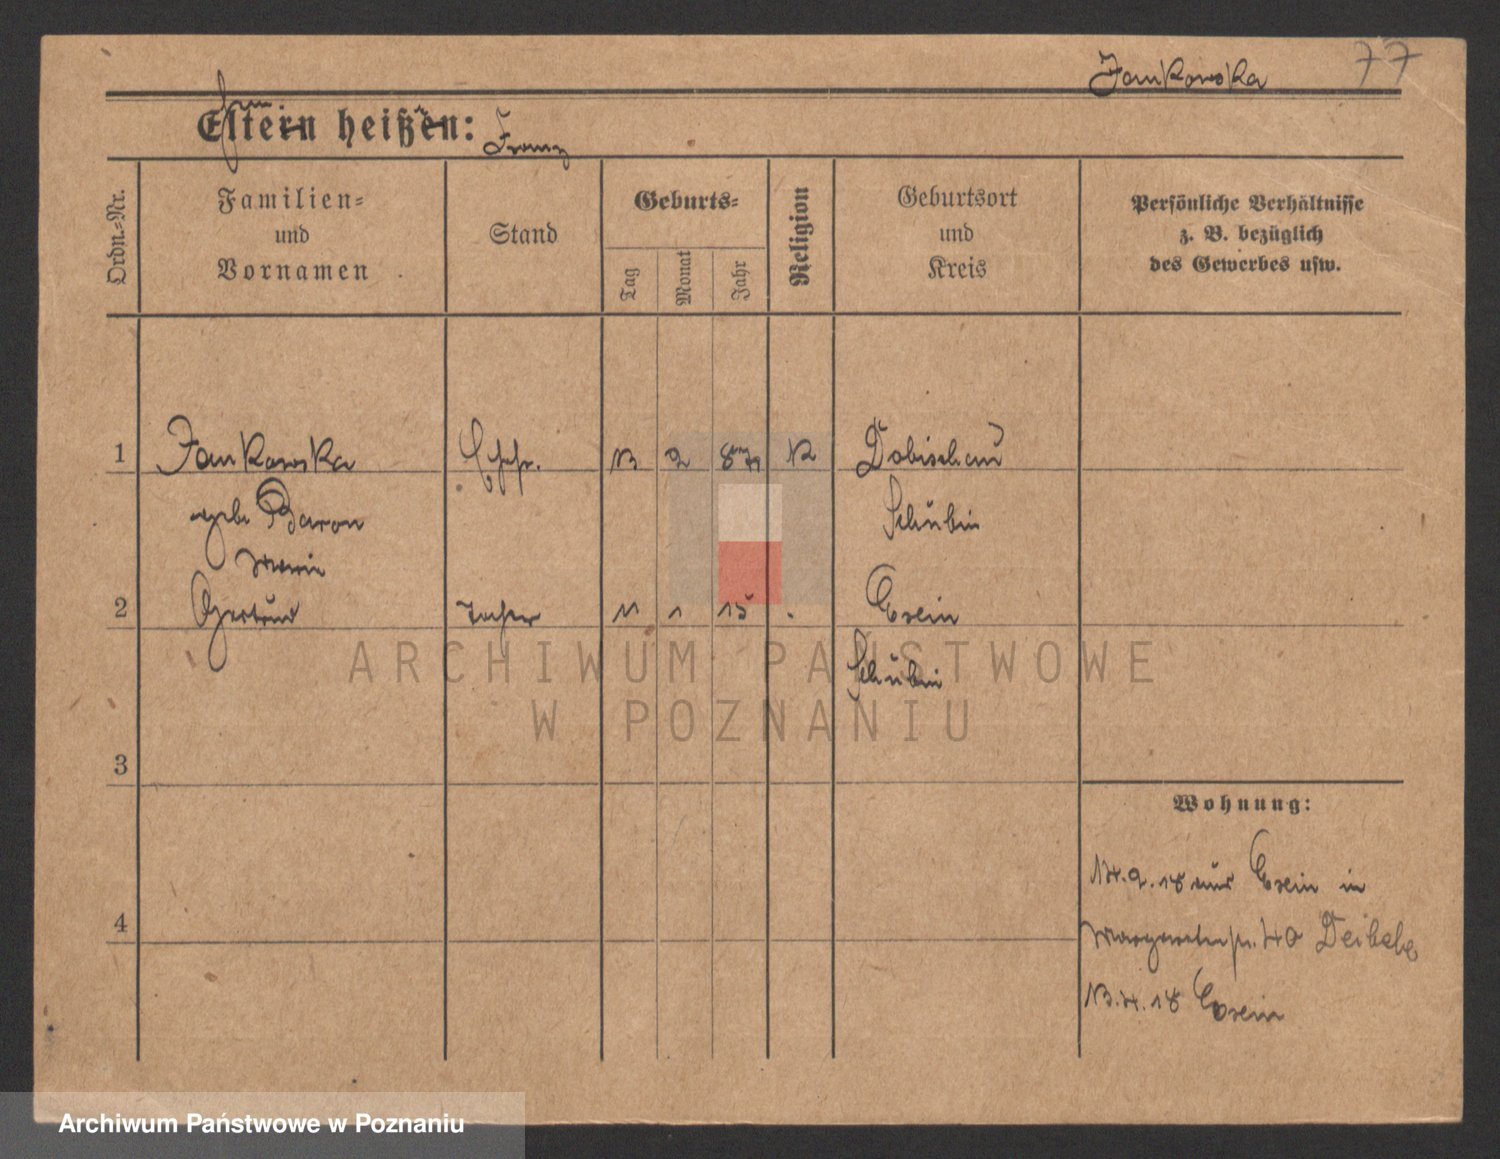 Jankowska 77
Eltern heißen: Franz
Ordn.=Nr.
Familien=
und
Vornamen
Stand
Geburts=
Tag
Monat
Jahr
Religion
Geburtsort
und
Kreis
Persönliche Verhältnisse
z. B. bezüglich
des Gewerbes usw.
1 Jankowska Ehfr. 13 2 87 K Dobischau
geb. Baron Schubin
Marie
2 Gertrud 11 1 15 Exin
Schubin
ARCHIWUM PAŃSTWOWE
W POZNANIU
3
Wohnung:
14.9.18 aus Exin in
4
Margaretenstr. 40
Exin
Archiwum Państwowe w Poznaniu